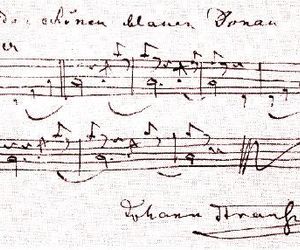 schönen blauen Donau
Johann Strauß